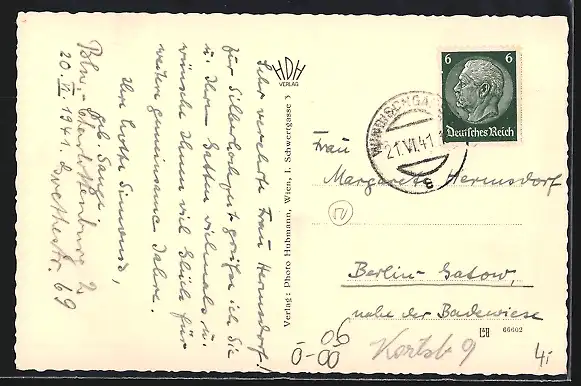 Sehr verehrte Frau Hermsdorf!
Zur Silberhochzeit grüße ich Sie
u. Ihren Gatten vielmals u.
wünsche Ihnen viel Glück für
weitere gemeinsame Jahre.
Ihre Simons,
geb. Lange.
Bln.-Charlottenburg 2
20. VI. 1941. Goethestr. 69
HDH
VERLAG
Verlag: Photo Hubmann, Wien, I. Schwertgasse 3
6 6
Deutsches Reich
21.VI.41
g
Frau
Margarete Hermsdorf
Berlin-Gatow,
nahe der Badewiese
66602